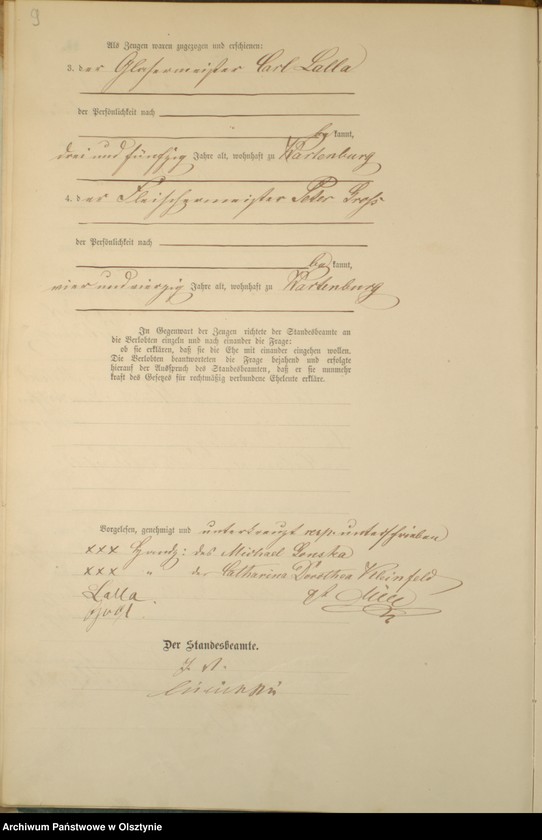 9
Als Zeugen waren zugezogen und erschienen:
3. der Glasermeister Carl Lalla
der Persönlichkeit nach
be kannt,
drei und fünfzig Jahre alt, wohnhaft zu Wartenburg
4. der Fleischermeister Peter Groß
der Persönlichkeit nach
be kannt,
vier und vierzig Jahre alt, wohnhaft zu Wartenburg
In Gegenwart der Zeugen richtete der Standesbeamte an
die Verlobten einzeln und nach einander die Frage:
ob sie erklären, daß sie die Ehe mit einander eingehen wollen.
Die Verlobten beantworteten die Frage bejahend und erfolgte
hierauf der Ausspruch des Standesbeamten, daß er sie nunmehr
kraft des Gesetzes für rechtmäßig verbundene Eheleute erkläre.
Vorgelesen, genehmigt und unterkreuzt resp. unterschrieben
xxx Handz: des Michael
xxx " der Catharina Dorothea Kleinfeld
Lalla
Der Standesbeamte.
Archiwum Państwowe w Olsztynie